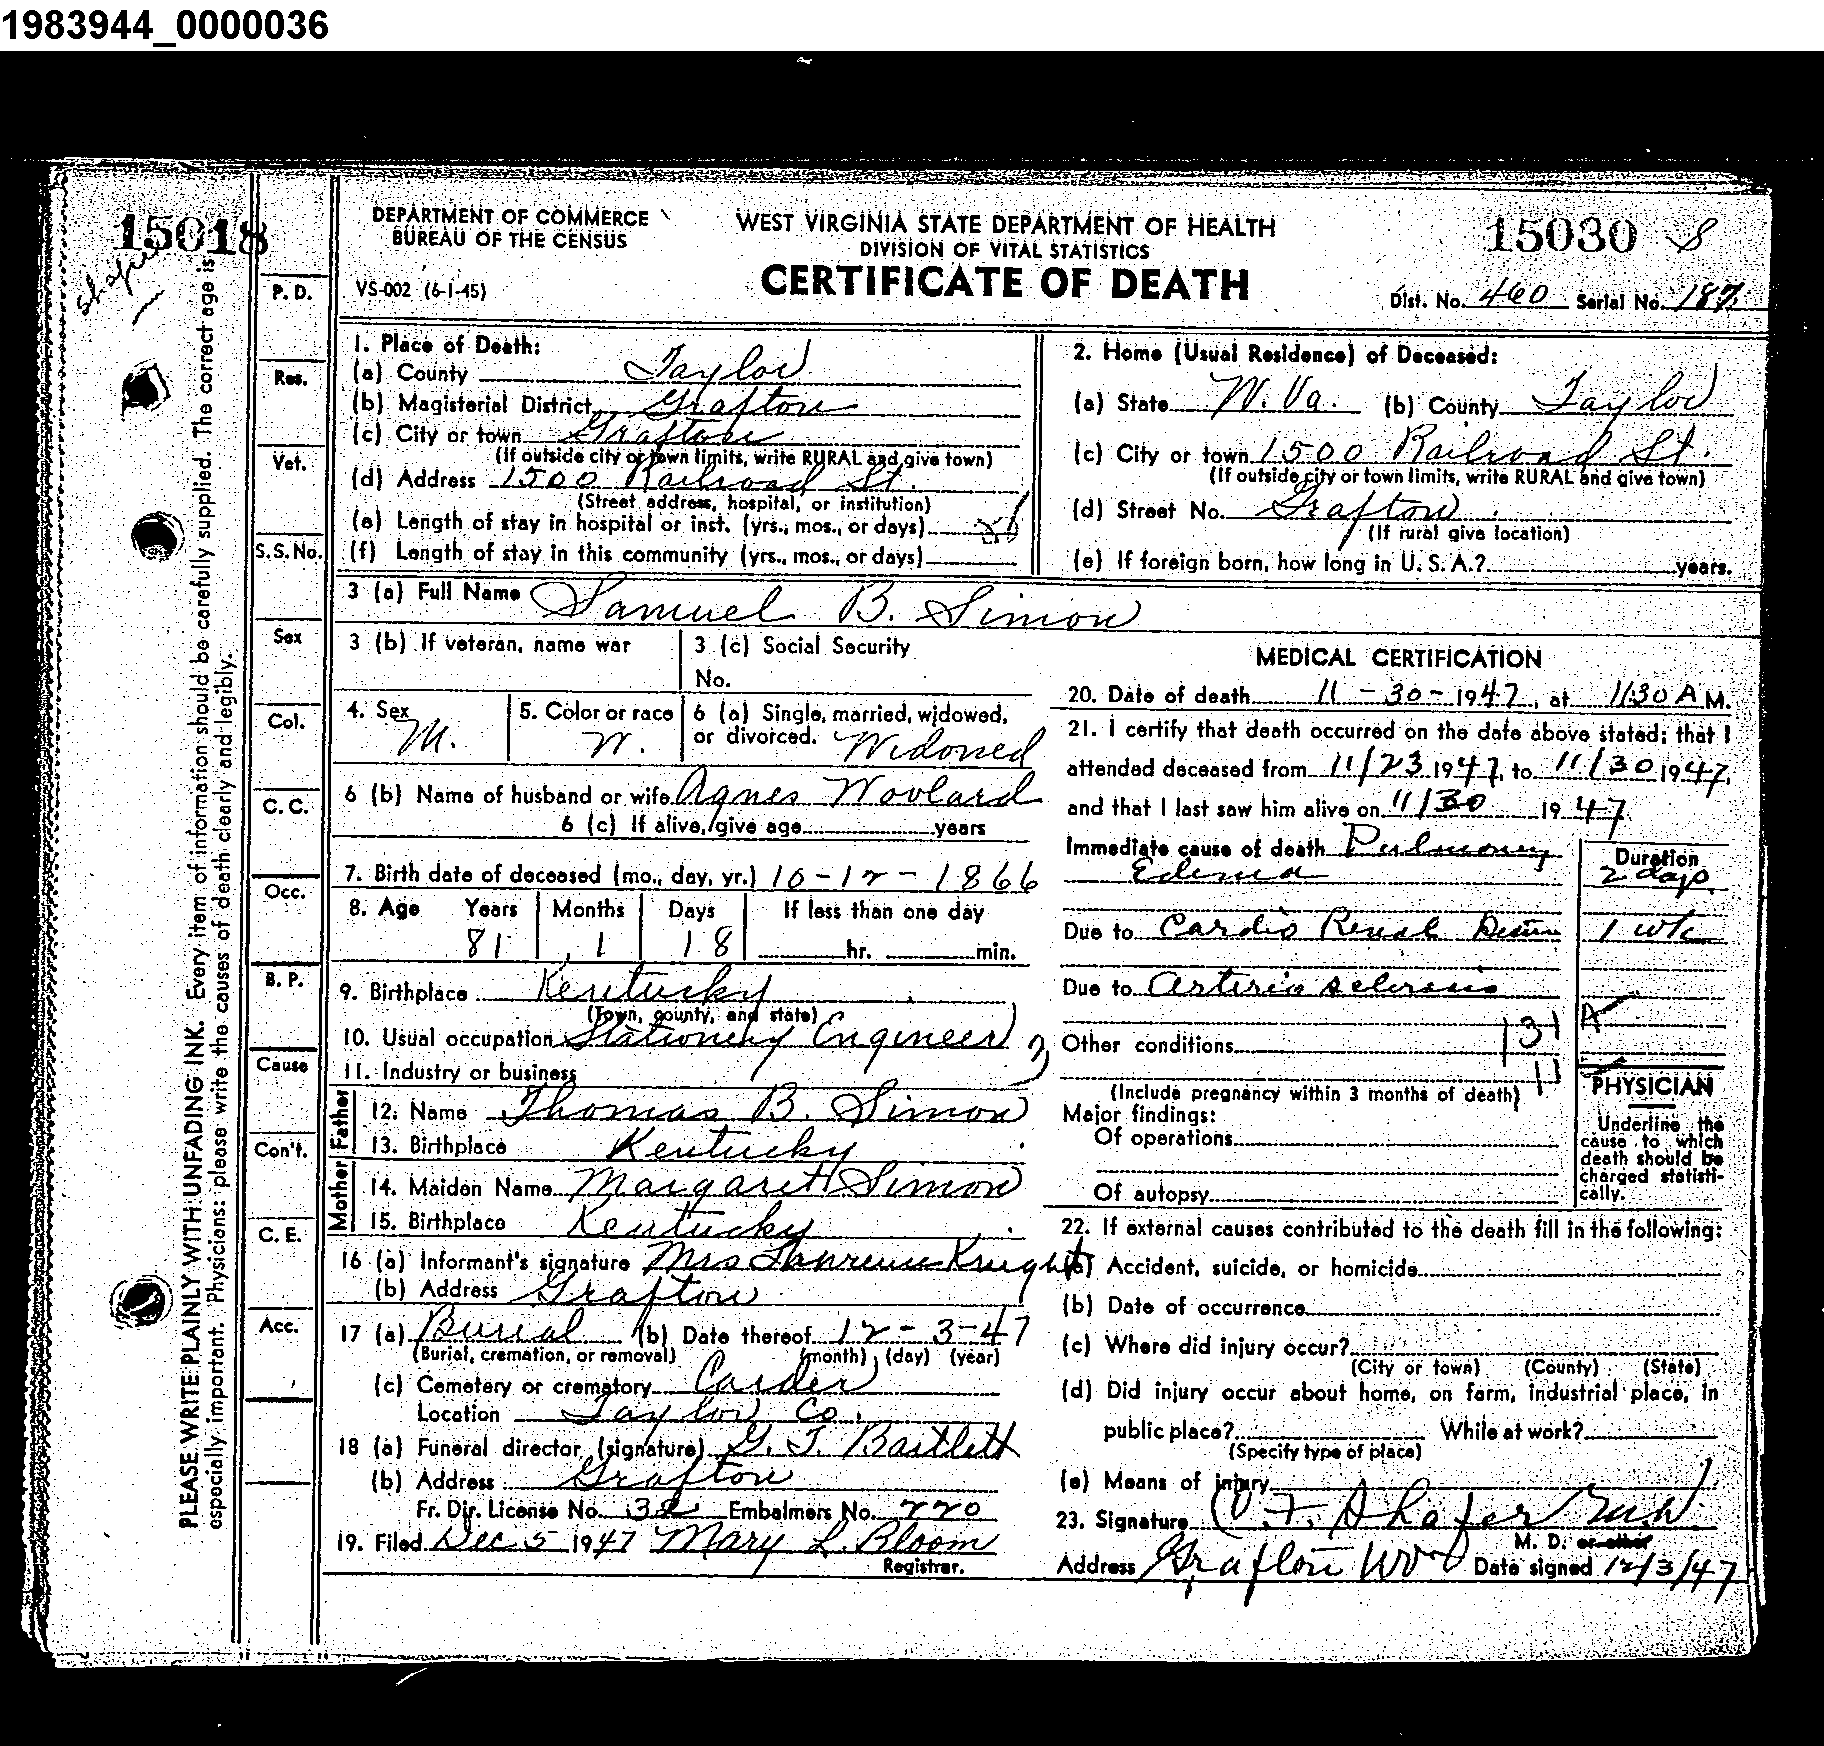 1983944_0000036
15018
DEPARTMENT OF COMMERCE
BUREAU OF THE CENSUS
VS-002 (6-1-45)
WEST VIRGINIA STATE DEPARTMENT OF HEALTH
DIVISION OF VITAL STATISTICS
CERTIFICATE OF DEATH
15030 S
Dist. No. 460 Serial No. 187
PLEASE WRITE PLAINLY WITH UNFADING INK. Every item of information should be carefully supplied. The correct age is
especially important. Physicians: please write the causes of death clearly and legibly.
P. D.
Res.
Vet.
S.S. No.
Sex
Col.
C. C.
Occ.
B. P.
Cause
Con't.
C. E.
Acc.
1. Place of Death:
(a) County Taylor
(b) Magisterial District Grafton
(c) City or town Grafton
(If outside city or town limits, write RURAL and give town)
(d) Address 1500 Railroad St.
(Street address, hospital, or institution)
(e) Length of stay in hospital or inst. (yrs., mos., or days)
(f) Length of stay in this community (yrs., mos., or days)
2. Home (Usual Residence) of Deceased:
(a) State W. Va. (b) County Taylor
(c) City or town 1500 Railroad St.
(If outside city or town limits, write RURAL and give town)
(d) Street No. Grafton
(If rural give location)
(e) If foreign born, how long in U. S. A.? years.
3 (a) Full Name Samuel B. Simon
3 (b) If veteran, name war
3 (c) Social Security
No.
4. Sex M.
5. Color or race W.
6 (a) Single, married, widowed,
or divorced. Widowed
6 (b) Name of husband or wife Agnes Woolard
6 (c) If alive, give age years
7. Birth date of deceased (mo., day, yr.) 10-12-1866
8. Age Years Months Days If less than one day
81 1 18 hr. min.
9. Birthplace Kentucky
(Town, county, and state)
10. Usual occupation Stationery Engineer
11. Industry or business
Father
12. Name Thomas B. Simon
13. Birthplace Kentucky
Mother
14. Maiden Name Margarett Simon
15. Birthplace Kentucky
16 (a) Informant's signature Mrs Lawrence Knight
(b) Address Grafton
17 (a) Burial (b) Date thereof 12-3-47
(Burial, cremation, or removal) (month) (day) (year)
(c) Cemetery or crematory Carder
Location Taylor Co.
18 (a) Funeral director (signature) G. T. Bartlett
(b) Address Grafton
Fr. Dir. License No. 32 Embalmers No. 220
19. Filed Dec 5 1947 Mary L. Bloom
Registrar.
MEDICAL CERTIFICATION
20. Date of death 11-30-1947, at 1130 A M.
21. I certify that death occurred on the date above stated; that I
attended deceased from 11/23 1947, to 11/30 1947,
and that I last saw him alive on 11/30 1947
Immediate cause of death Pulmonary
Edema
Duration
2 days
Due to Cardio Renal 1 wk
Due to Arterio sclerosis
Other conditions 131 A
11
(Include pregnancy within 3 months of death)
Major findings:
Of operations
Of autopsy
PHYSICIAN
Underline the
cause to which
death should be
charged statisti-
cally.
22. If external causes contributed to the death fill in the following:
(a) Accident, suicide, or homicide
(b) Date of occurrence
(c) Where did injury occur?
(City or town) (County) (State)
(d) Did injury occur about home, on farm, industrial place, in
public place? While at work?
(Specify type of place)
(e) Means of injury
23. Signature F. Shafer M.D.
M. D. or other
Address Grafton WVa Date signed 12/3/47